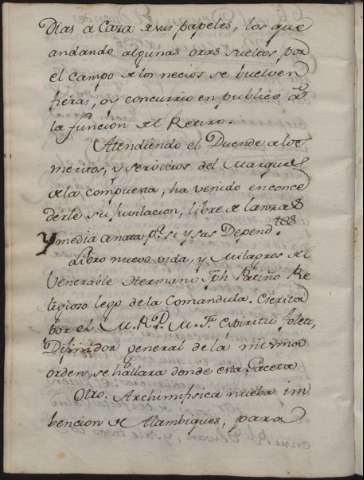 Dias a Caza de sus papeles, los que
andando algunas oras sueltos, por
el campo de los necios se buelven
fieras, oy concurrio en publico a
la funcion del Retiro.
Atendiendo el Duende a los
meritos, y servicios del Marques
de la Compuerta, ha venido en conce
derle su Jubilacion, libre de lanzas
Y media annata pr. si y sus Depend.tes
Libro nuevo vida, y Milagros del
Venerable Hermano Jph Patiño Re
ligioso lego de la Comandula. Escrita
por el M. R. P. M. F. Espiritu
Difinidor general de la misma
orden, se hallara donde esta Gaceta
Otro. Archimifsica nueba im
bencion de Alambiques, para